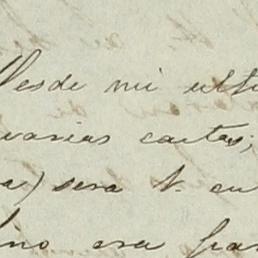 Desde mi ulti
varias cartas;
a) sera V. en
ino era